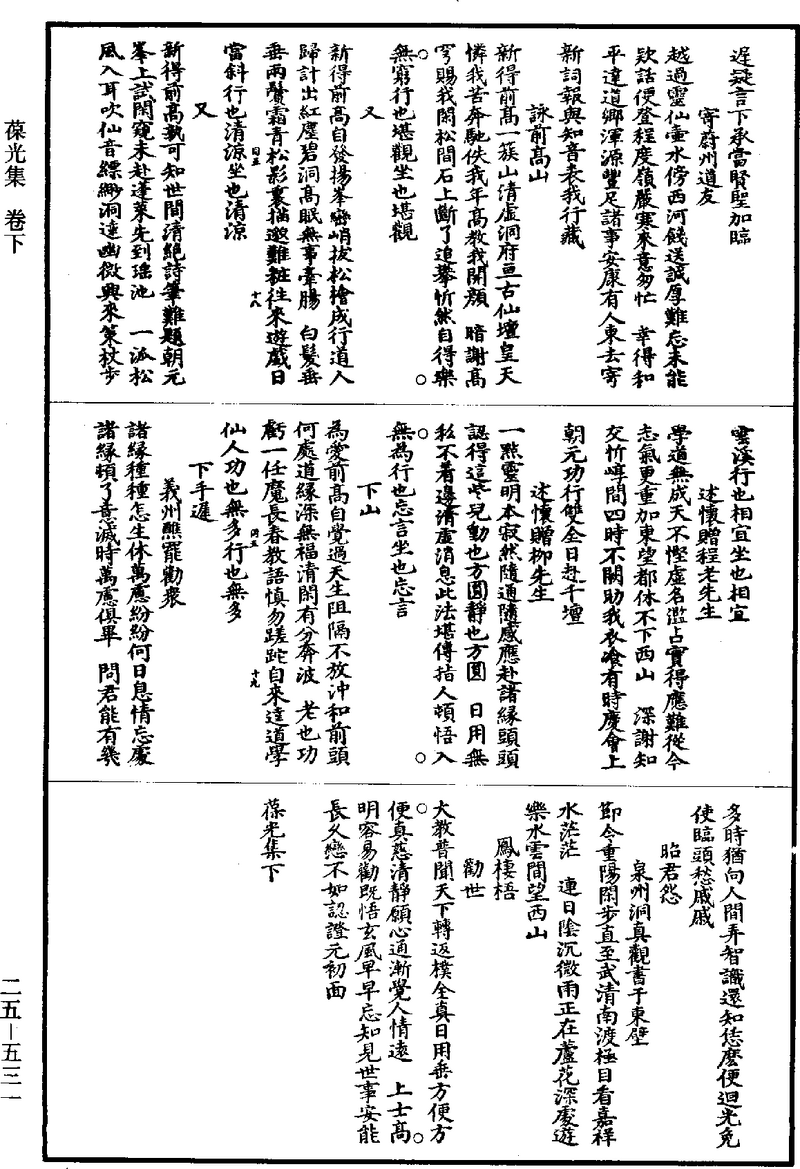 葆光集　卷下
遲疑言下承當賢聖加臨
寄蔚州道友
越過靈仙壷水傍西河餞送誠厚難忘未能
欵話便登程度嶺嚴寒來意匆忙　幸得和
平達道鄉渾源豐足諸事安康有人東去寄
新詞報與知音表我行藏
詠前高山
新得前高一簇山清虛洞府亘古仙壇皇天
憐我苦奔馳佚我年高教我開顏　暗謝高
穹賜我閑松間石上斷了追攀忻然自得樂
無窮行也堪觀坐也堪觀
又
新得前高自發揚峯巒峭拔松檜成行道人
歸計出紅塵碧洞高眠無事牽腸　白髮垂
垂兩鬢霜青松影裏描邈難粧往來遊戲日
當斜行也清涼坐也清涼
又
新得前高孰可知世間清絕詩筆難題朝元
峯上試閑窺未赴蓬萊先到瑤池　一派松
風入耳吹仙音縹緲洞遠幽微興來策杖步
雲溪行也相宜坐也相宜
述懷贈程老先生
學道無成天不慳虛名濫占實得應難從今
志氣更重加東望都休不下西山　深謝知
交忻㟳間四時不闕助我衣飡有時慶會上
朝元功行雙全日赴千壇
述懷贈柳先生
一㸃靈明本寂然隨通隨感應赴諸緣頭頭
認得這些兒動也方圓靜也方圓　日用無
私不着邊清虛消息此法堪傳括人頓悟入
無為行也忘言坐也忘言
下山
為愛前高自覺過天生阻隔不放沖和前頭
何處道緣深無福清閑有分奔波　老也功
虧一任魔長春教語慎勿蹉跎自來達道學
仙人功也無多行也無多
下手遲
義州醮罷勸衆
諸緣種種怎生休萬慮紛紛何日息情忘慮
諸緣頓了意滅時萬慮俱畢　問君能有幾
多時猶向人間弄智識還知恁麽便迴光免
使臨頭愁戚戚
昭君怨
泉州洞真觀書于東壁
節令重陽閑步直至武清南渡極目看嘉祥
水茫茫　連日陰沉微雨正在蘆花深處遊
樂水雲間望西山
鳳棲梧
勸世
大教普聞天下轉返樸全真日用垂方便方
便真慈清靜願心通漸覺人情遠　上士高
明容易勸既悟玄風早早忘知見世事安能
長久戀不如認證元初面
葆光集下
二五－五三一